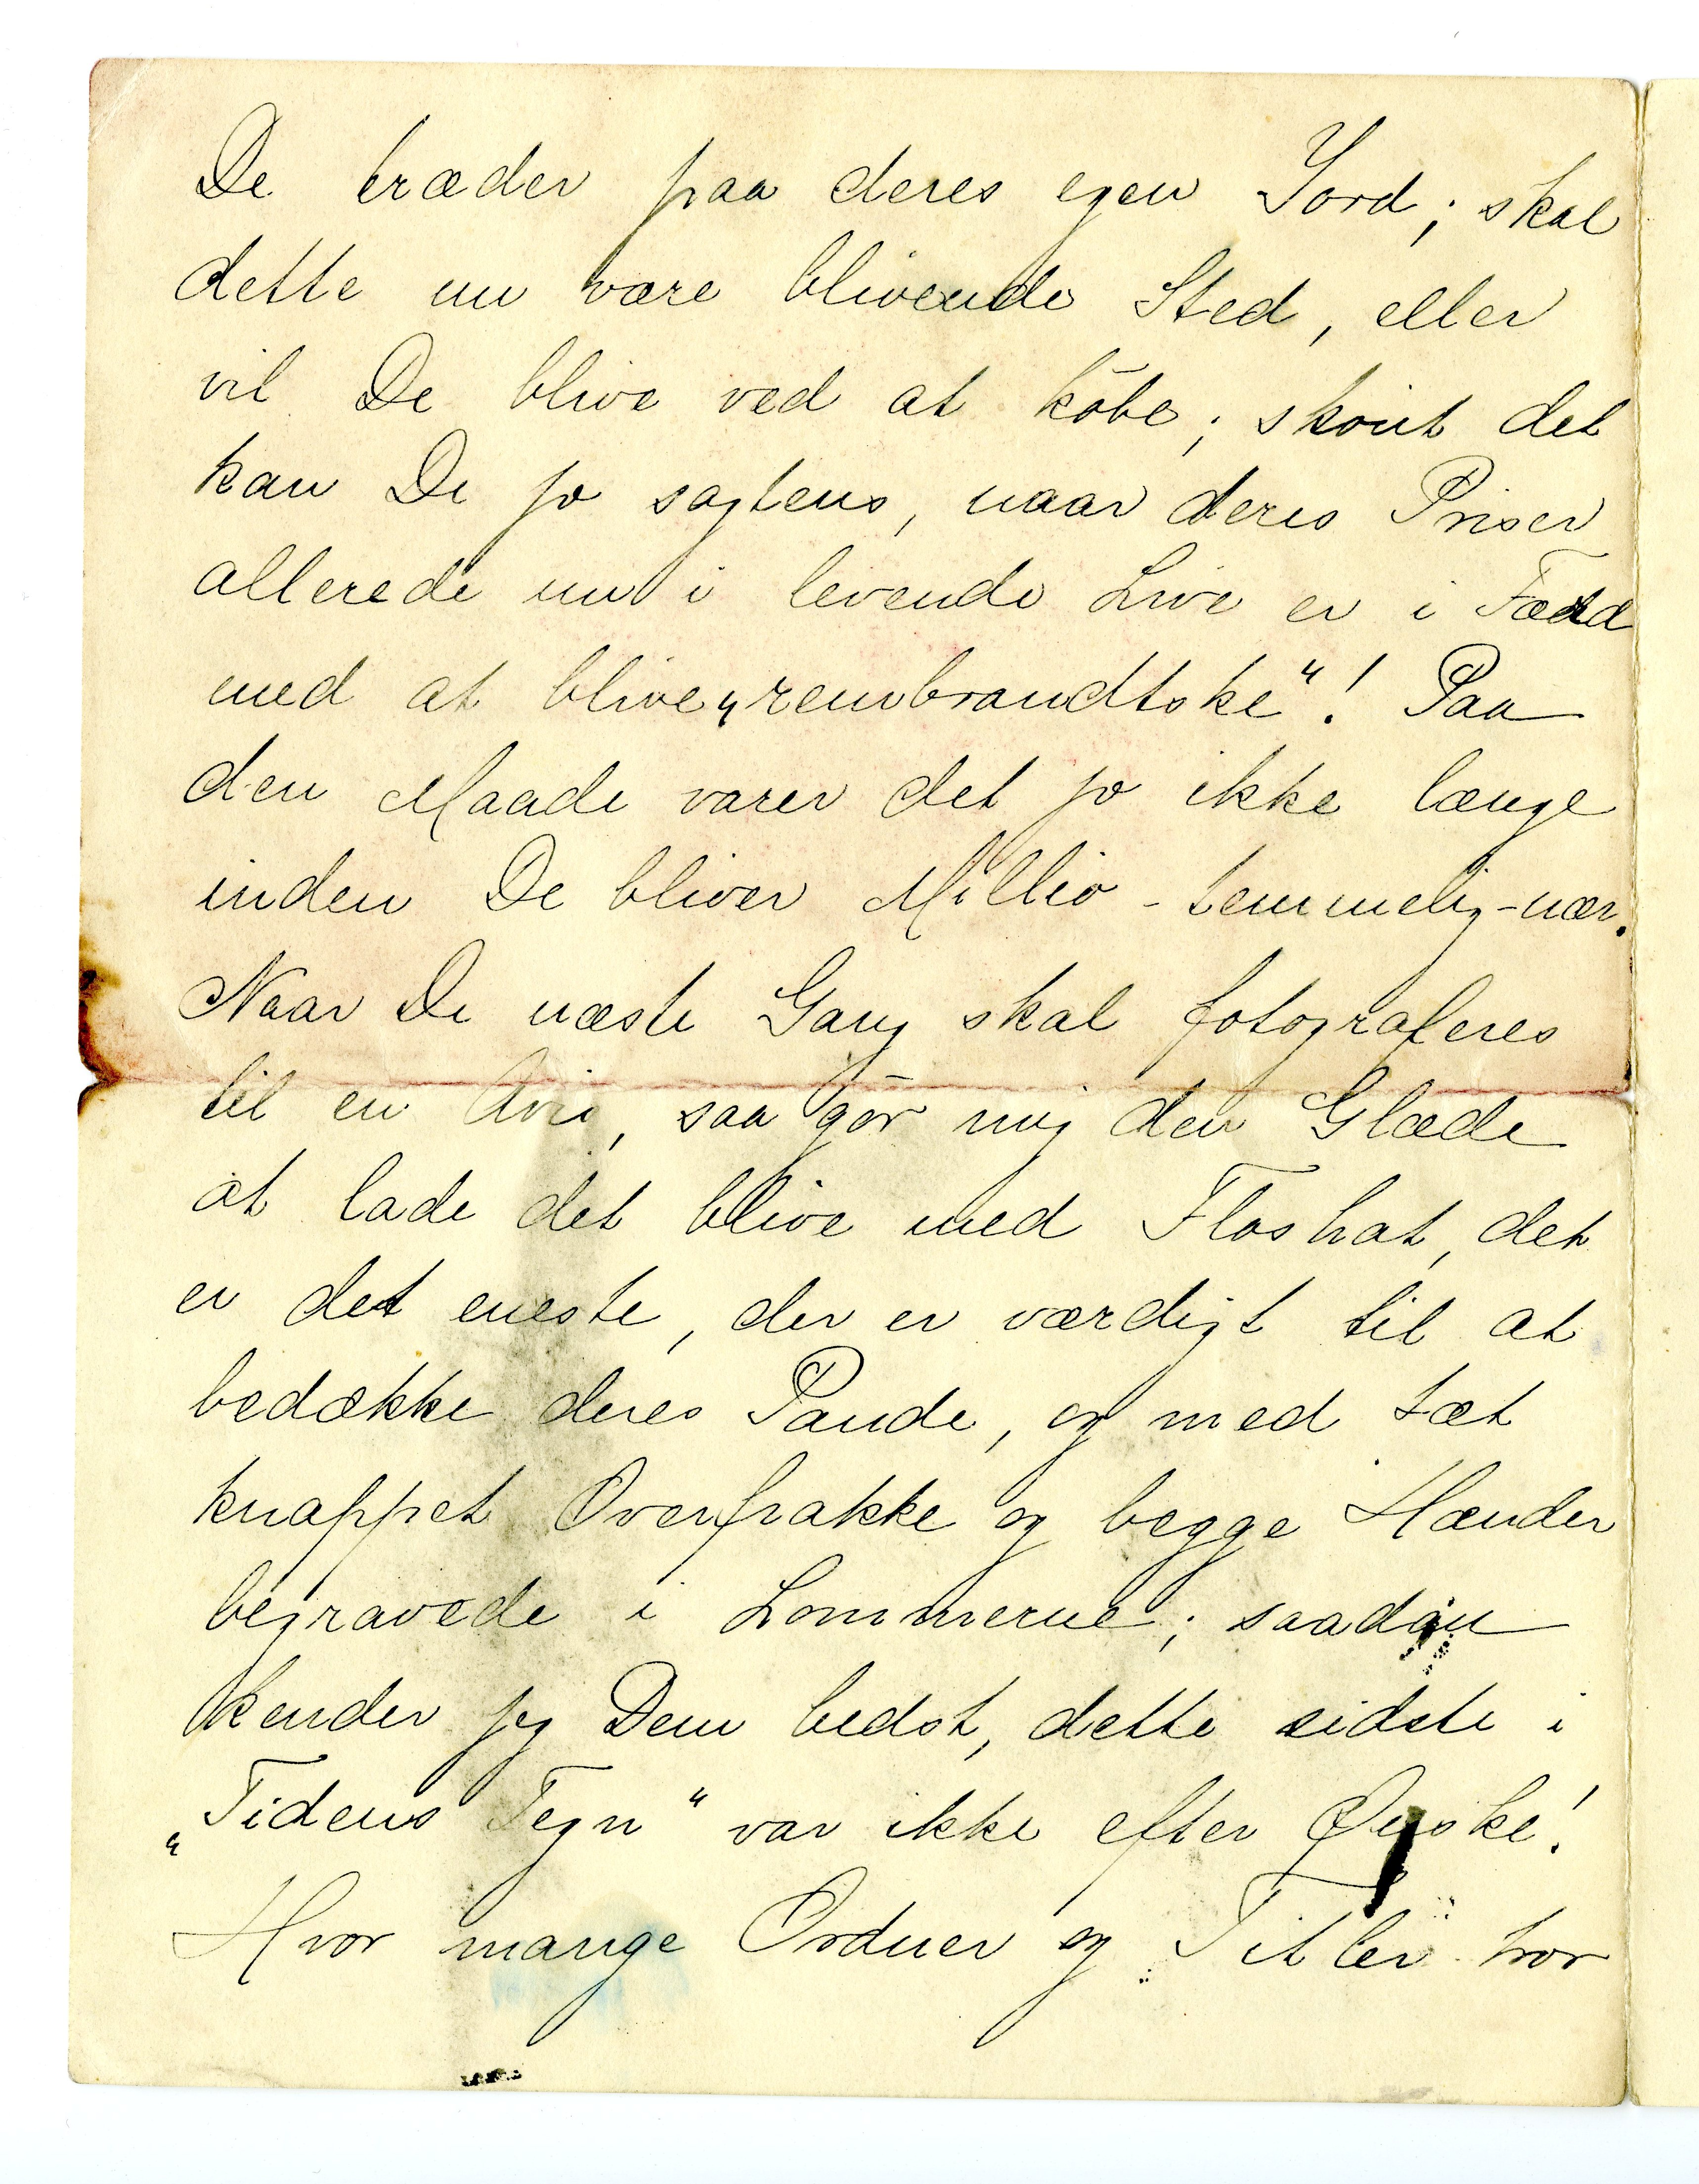 De træder paa deres egen Jord; skal
dette nu være blivende Sted, eller
vil De blive ved at købe; skønt det
kan De jo sagtens, naar deres Priser
allerede nu i levende Live er i Færd
med at blive „rembrandtske“! Paa
den Maade varer det jo ikke længe
inden De bliver Millio-temmelig-nær.
Naar De næste Gang skal fotograferes
til en Avis, saa gør mig den Glæde
at lade det blive med Floshat, det
er det eneste, der er værdigt til at
bedække deres Pande, og med tæt
knappet Overfrakke og begge Hænder
begravede i Lommerne; saadan
kender jeg Dem bedst, dette sidste i
„Tidens Tegn“ var ikke efter Ønske!
Hvor mange Ordner og Titler hvor